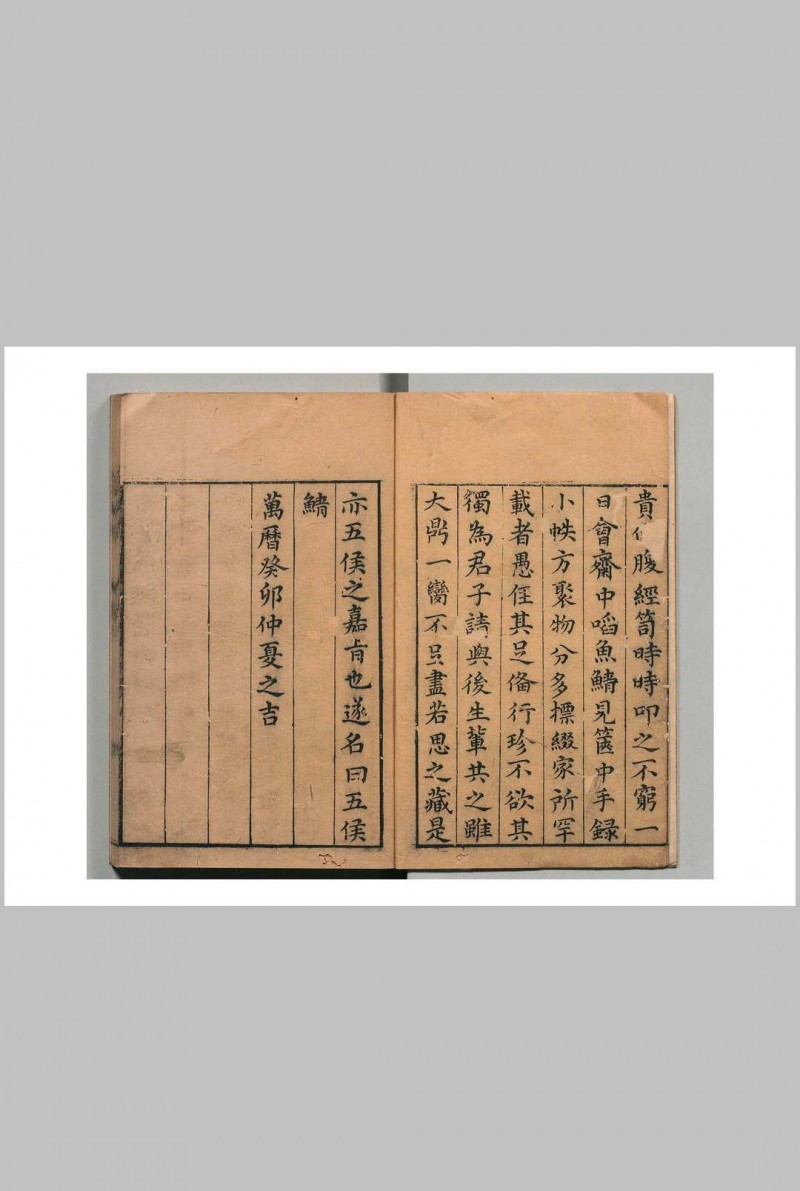 貴 腹經笥時時叩之不窮一
日會齋中啗魚鯖見篋中手録
小帙方聚物分多摽綴家所罕
載者愚侄其足俻行珍不欲其
獨為君子請與後生軰共之雖
大鼎一臠不足盡若思之藏是
亦五侯之嘉肯也遂名曰五侯
鯖
萬曆癸卯仲夏之吉